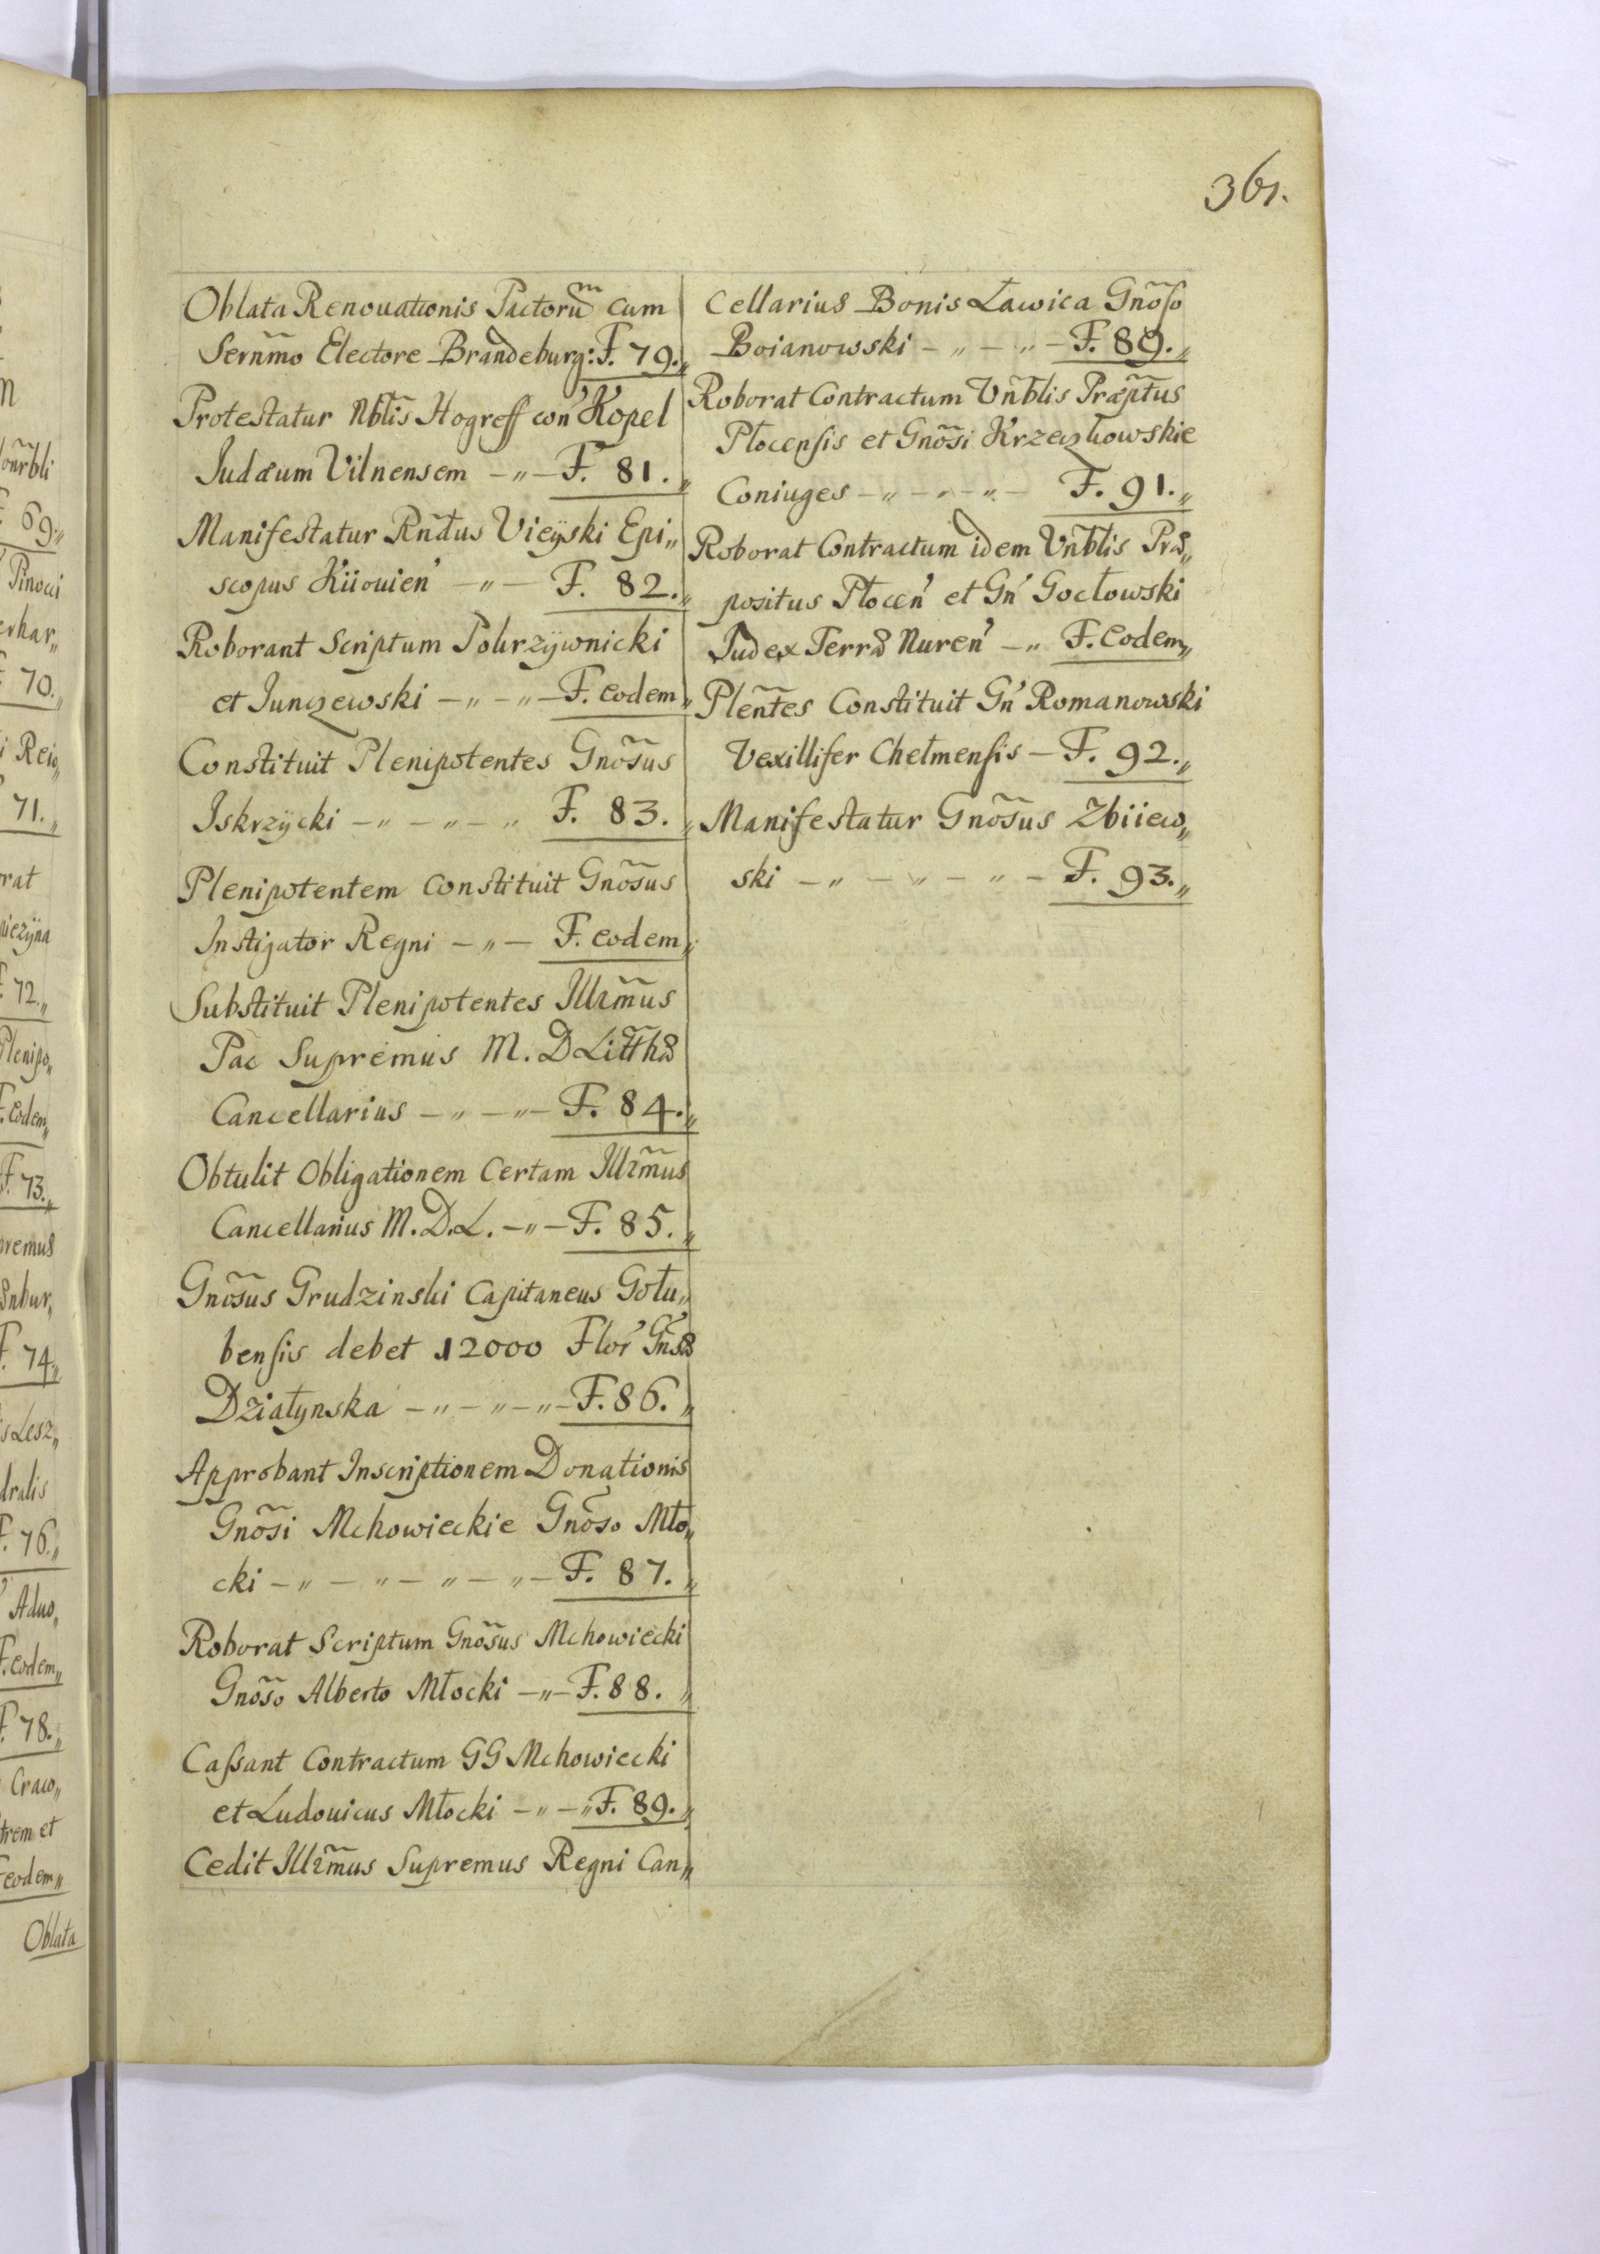 361.
Oblata Renouationis Pactorũm cum
Sernm̃o Electore Brandeburg: F. 79.„
Protestatur Nbl̃is Hogreff con' Kopel
Judæum Vilnensem –„– F. 81.„
Manifestatur Rñdus Vieÿski Epi„
scopus Kiiouien' –„– F. 82.„
Roborant Scriptum Pokrzÿwnicki
et Junczewski –„–„– F. eodem„
Constituit Plenipotentes Gnõsus
Iskrzÿcki –„–„–„ F. 83.„
Plenipotentem constituit Gnõsus
Instigator Regni –„– F. eodem„
Substituit Plenipotentes Illrm̃us
Pac Supremus M. D Litthæ
Cancellarius –„–„– F. 84.„
Obtulit Obligationem certam Illrm̃us
Cancellarius M.D.L. –„– F. 85.„
Gnõsus Grudzinski Capitaneus Gołu„
bensis debet 12000 Flor' Gnsæ
Działynska –„–„–„– F. 86.„
Approbant Inscriptionem Donationis
Gnõsi Mchowieckie Gnõso Mło„
cki –„–„–„–„– F. 87.„
Roborat Scriptum Gnõsus Mchowiecki
Gnõso Alberto Młocki –„– F. 88.„
Cassant Contractum GG Mchowiecki
et Ludouicus Młocki –„–„ F. 89.„
Cedit Illrm̃us Supremus Regni Can„
cellarius Bonis Ławica Gnõso
Boianowski –„–„– F. 89.„
Roborat Contractum Vñblis Præptus
Płocensis et Gnõsi Krzeczkowskie
Coniuges –„–„–„– F. 91.„
Roborat Contractum idem Vñblis Præ„
positus Płocen' et Gn' Gocłowski
Judex Terræ Nuren' –„ F. Eodem„
Plen̄tes Constituit Gn' Romanowski
Vexillifer Chełmensis – F. 92.„
Manifestatur Gnõsus Zbiiew„
ski –„–„–„– F. 93.„
69„
Pinocci
70.„
71.„
72.„
Plenipo„
F. Eodem„
F. 73.„
F. 74„
dralis
F. 76.„
Aduo„
F. eodem„
F. 78.„
Craco„
eodem„
Oblata